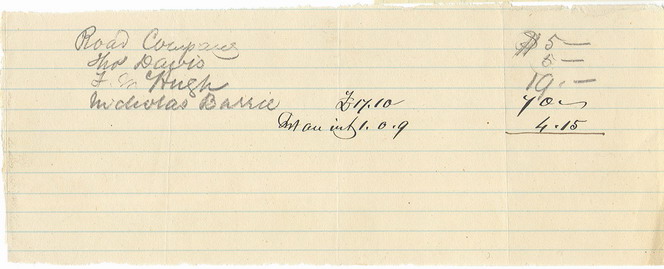 Road Company $5 —
Thos Davis 5 —
Hugh 19. —
Nicholas Barrie £17.10 70
int 1.0.9 4.15